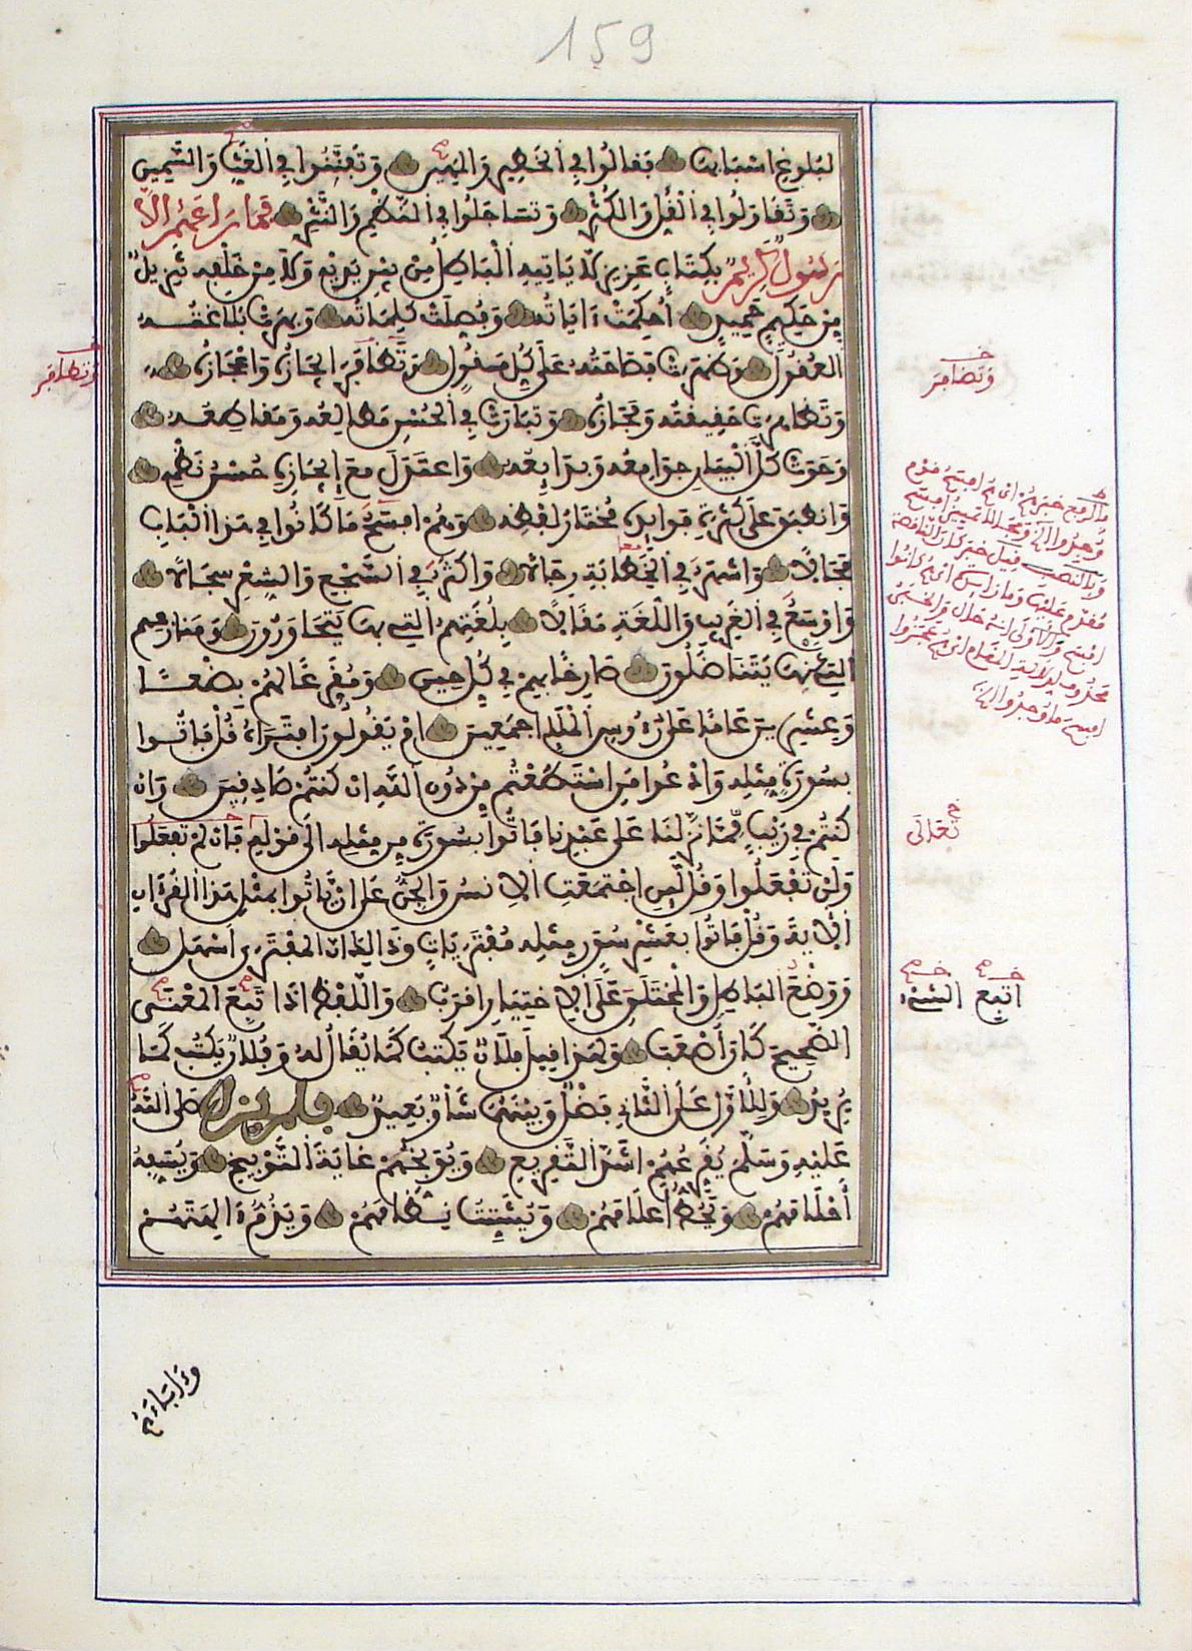 159
لبلوغ اسبابها فقالوا في الخطير والمهين وتفننوا في الغث والسمين
وتقاولوا في القل والكثر وتساجلوا في النظم والنثر فما راعهم الا
رسول كريم بكتاب عزيز لا ياتيه الباطل من بين يديه ولا من خلفه تنزيل
من حكيم حميد احكمت ءاياته وفصلت كلماته وبهرت بلاغته
العقول وظهرت فصاحته على كل مقول وتظافر ايجازه واعجازه
وتظاهرت حقيقته ومجازه وتبارت في الحسن مطالعه ومقاطعه
وحوت كل البيان جوامعه وبدايعه واعتدل مع ايجازه حسن نظمه
وانطبق على كثرة فوايده مختار لفظه وهم افسح ما كانوا في هذا الباب
مجالا واشهر في الخطابة رجالا واكثر في السجع والشعر سجالا
واوسع في الغريب واللغة مقالا بلغتهم التي بها يتحاورون ومنازعهم
التي عنها يتناضلون صارخا بهم في كل حين ومقرعا لهم بضعا
وعشرين عاما على رءوس الملإ اجمعين ام يقولون افتراه قل فاتوا
بسورة مثله وادعوا من استطعتم من دون الله ان كنتم صادقين وان
كنتم في ريب مما نزلنا على عبدنا فاتوا بسورة من مثله الى قوله فان لم تفعلوا
ولن تفعلوا وقل لئن اجتمعت الانس والجن على ان ياتوا بمثل هذا القرءان
الاية وقل فاتوا بعشر سور مثله مفتريات وذالك ان المفترى اسهل
ووضع الباطل والمختلق على الاختيار اقرب واللفظ اذا تبع المعنى
الصحيح كان اصعب ولهذا قيل فلان يكتب كما يقال له وفلان يكتب كما
يريد وللاول على الثاني فضل وبينهما شاو بعيد فلم يزل صلى الله
عليه وسلم يقرعهم اشد التقريع ويوبخهم غاية التوبيخ ويسفه
احلامهم ويحط اعلامهم ويشتت نظامهم ويذم ءالهتهم
وتظافر
وتضافر
تعالى
اتبع الشيء
وءاباءهم